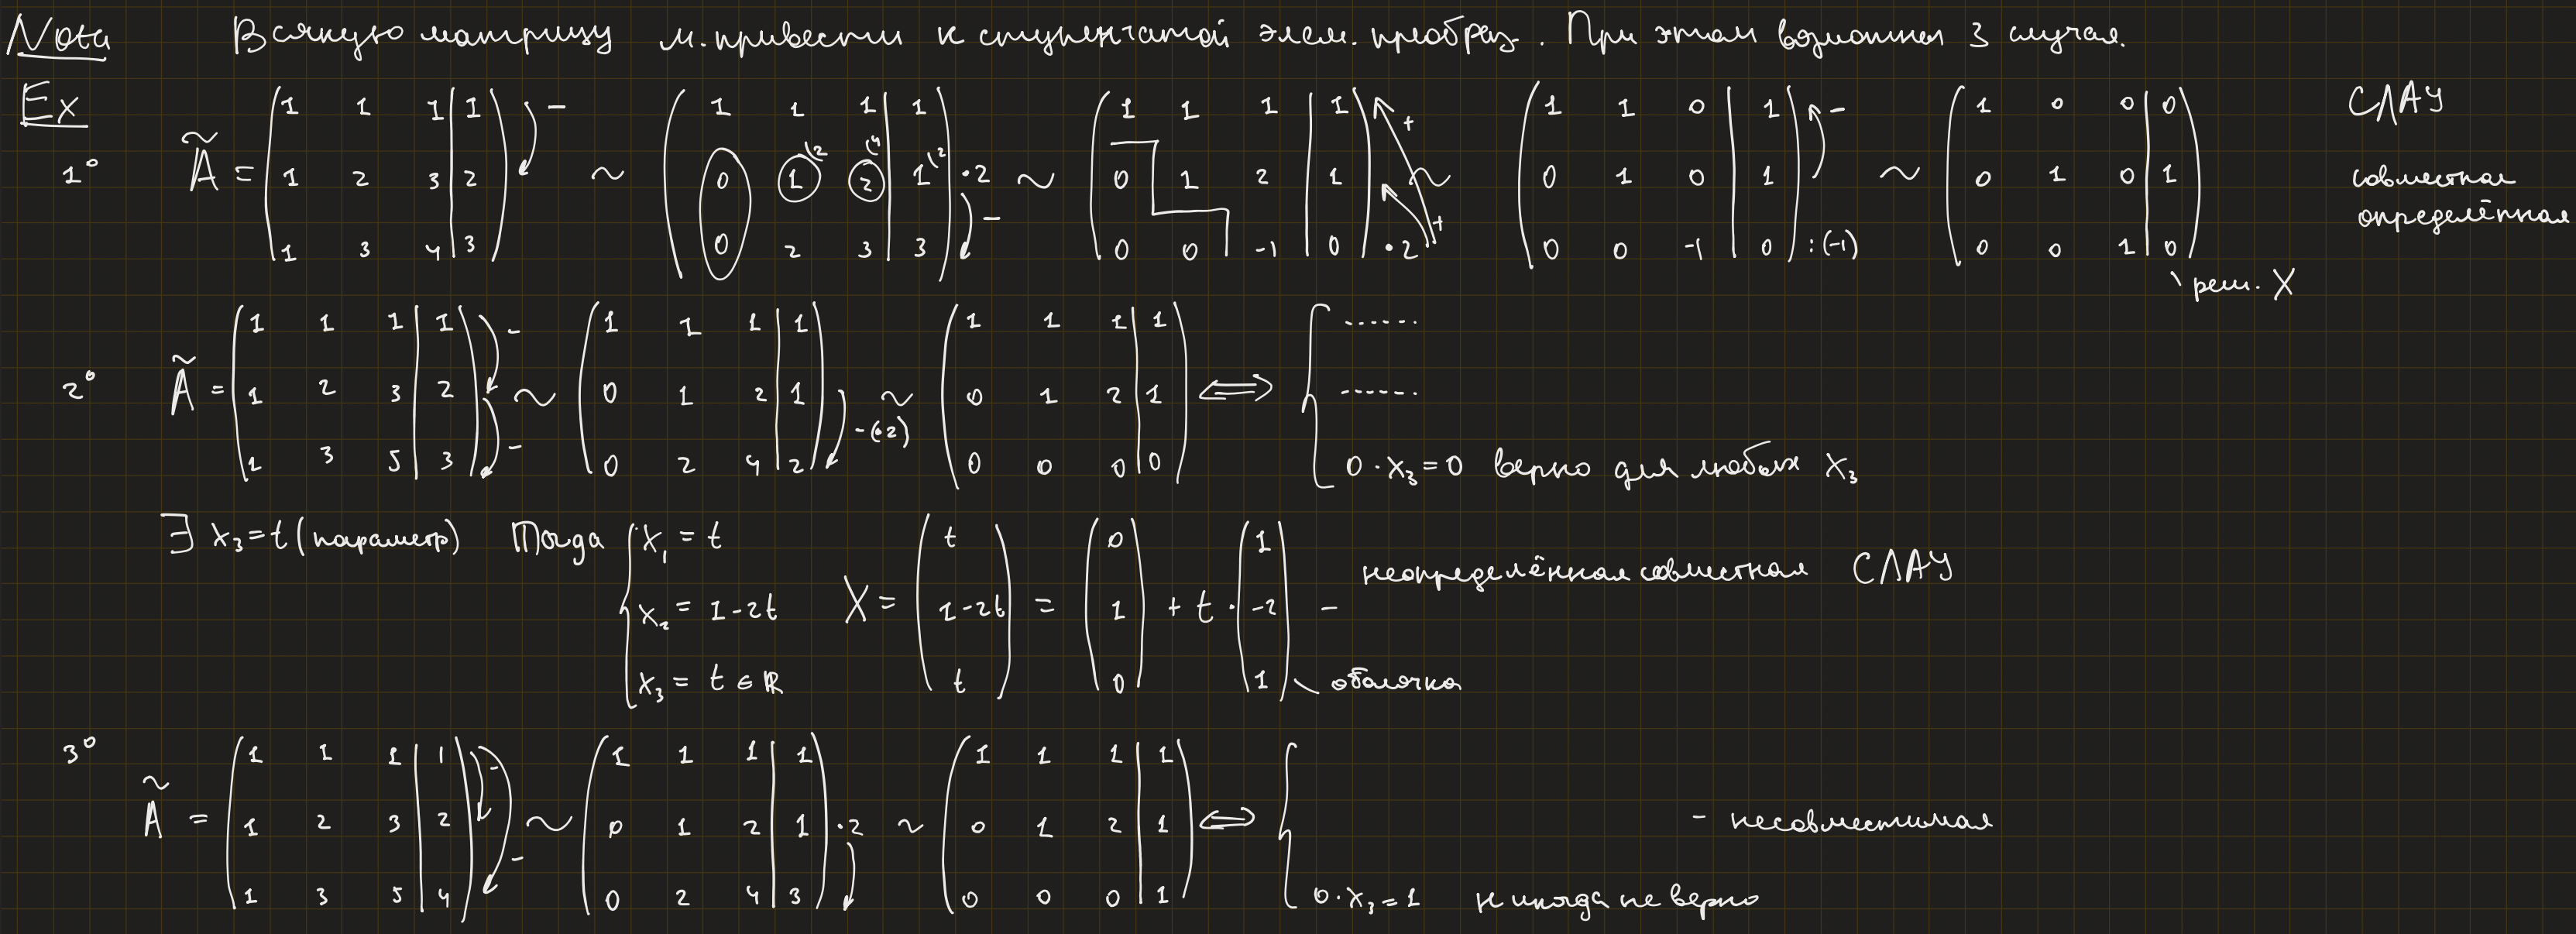 Nota Всякую матрицу м. привести к ступенчатой элем. преобраз. При этом возможны 3 случая.
Ex
1° Ã = (1 1 1 | 1; 1 2 3 | 2; 1 3 4 | 3) - ~ (1 1 1 | 1; 0 1\2 2\4 1\2; 0 2 3 | 3) ·2 - ~ (1 1 1 | 1; 0 1 2 | 1; 0 0 -1 | 0) + + ·2 ~ (1 1 0 | 1; 0 1 0 | 1; 0 0 -1 | 0) - :(-1) ~ (1 0 0 | 0; 0 1 0 | 1; 0 0 1 | 0)
СЛАУ
совместная
определённая
реш. X
2° Ã = (1 1 1 | 1; 1 2 3 | 2; 1 3 5 | 3) - - ~ (1 1 1 | 1; 0 1 2 | 1; 0 2 4 | 2) -(·2) ~ (1 1 1 | 1; 0 1 2 | 1; 0 0 0 | 0) ⟺ { ......
......
0·x₃=0 верно для любых x₃
∃ x₃=t (параметр) Тогда { x₁ = t; x₂ = 1-2t; x₃ = t ∈ ℝ X = (t; 1-2t; t) = (0; 1; 0) + t·(1; -2; 1) - неопределённая совместная СЛАУ
оболочка
3° Ã = (1 1 1 | 1; 1 2 3 | 2; 1 3 5 | 4) - - ~ (1 1 1 | 1; 0 1 2 | 1; 0 2 4 | 3) ·2 ~ (1 1 1 | 1; 0 1 2 | 1; 0 0 0 | 1) ⟺ {
- несовместимая
0·x₃=1 никогда не верно